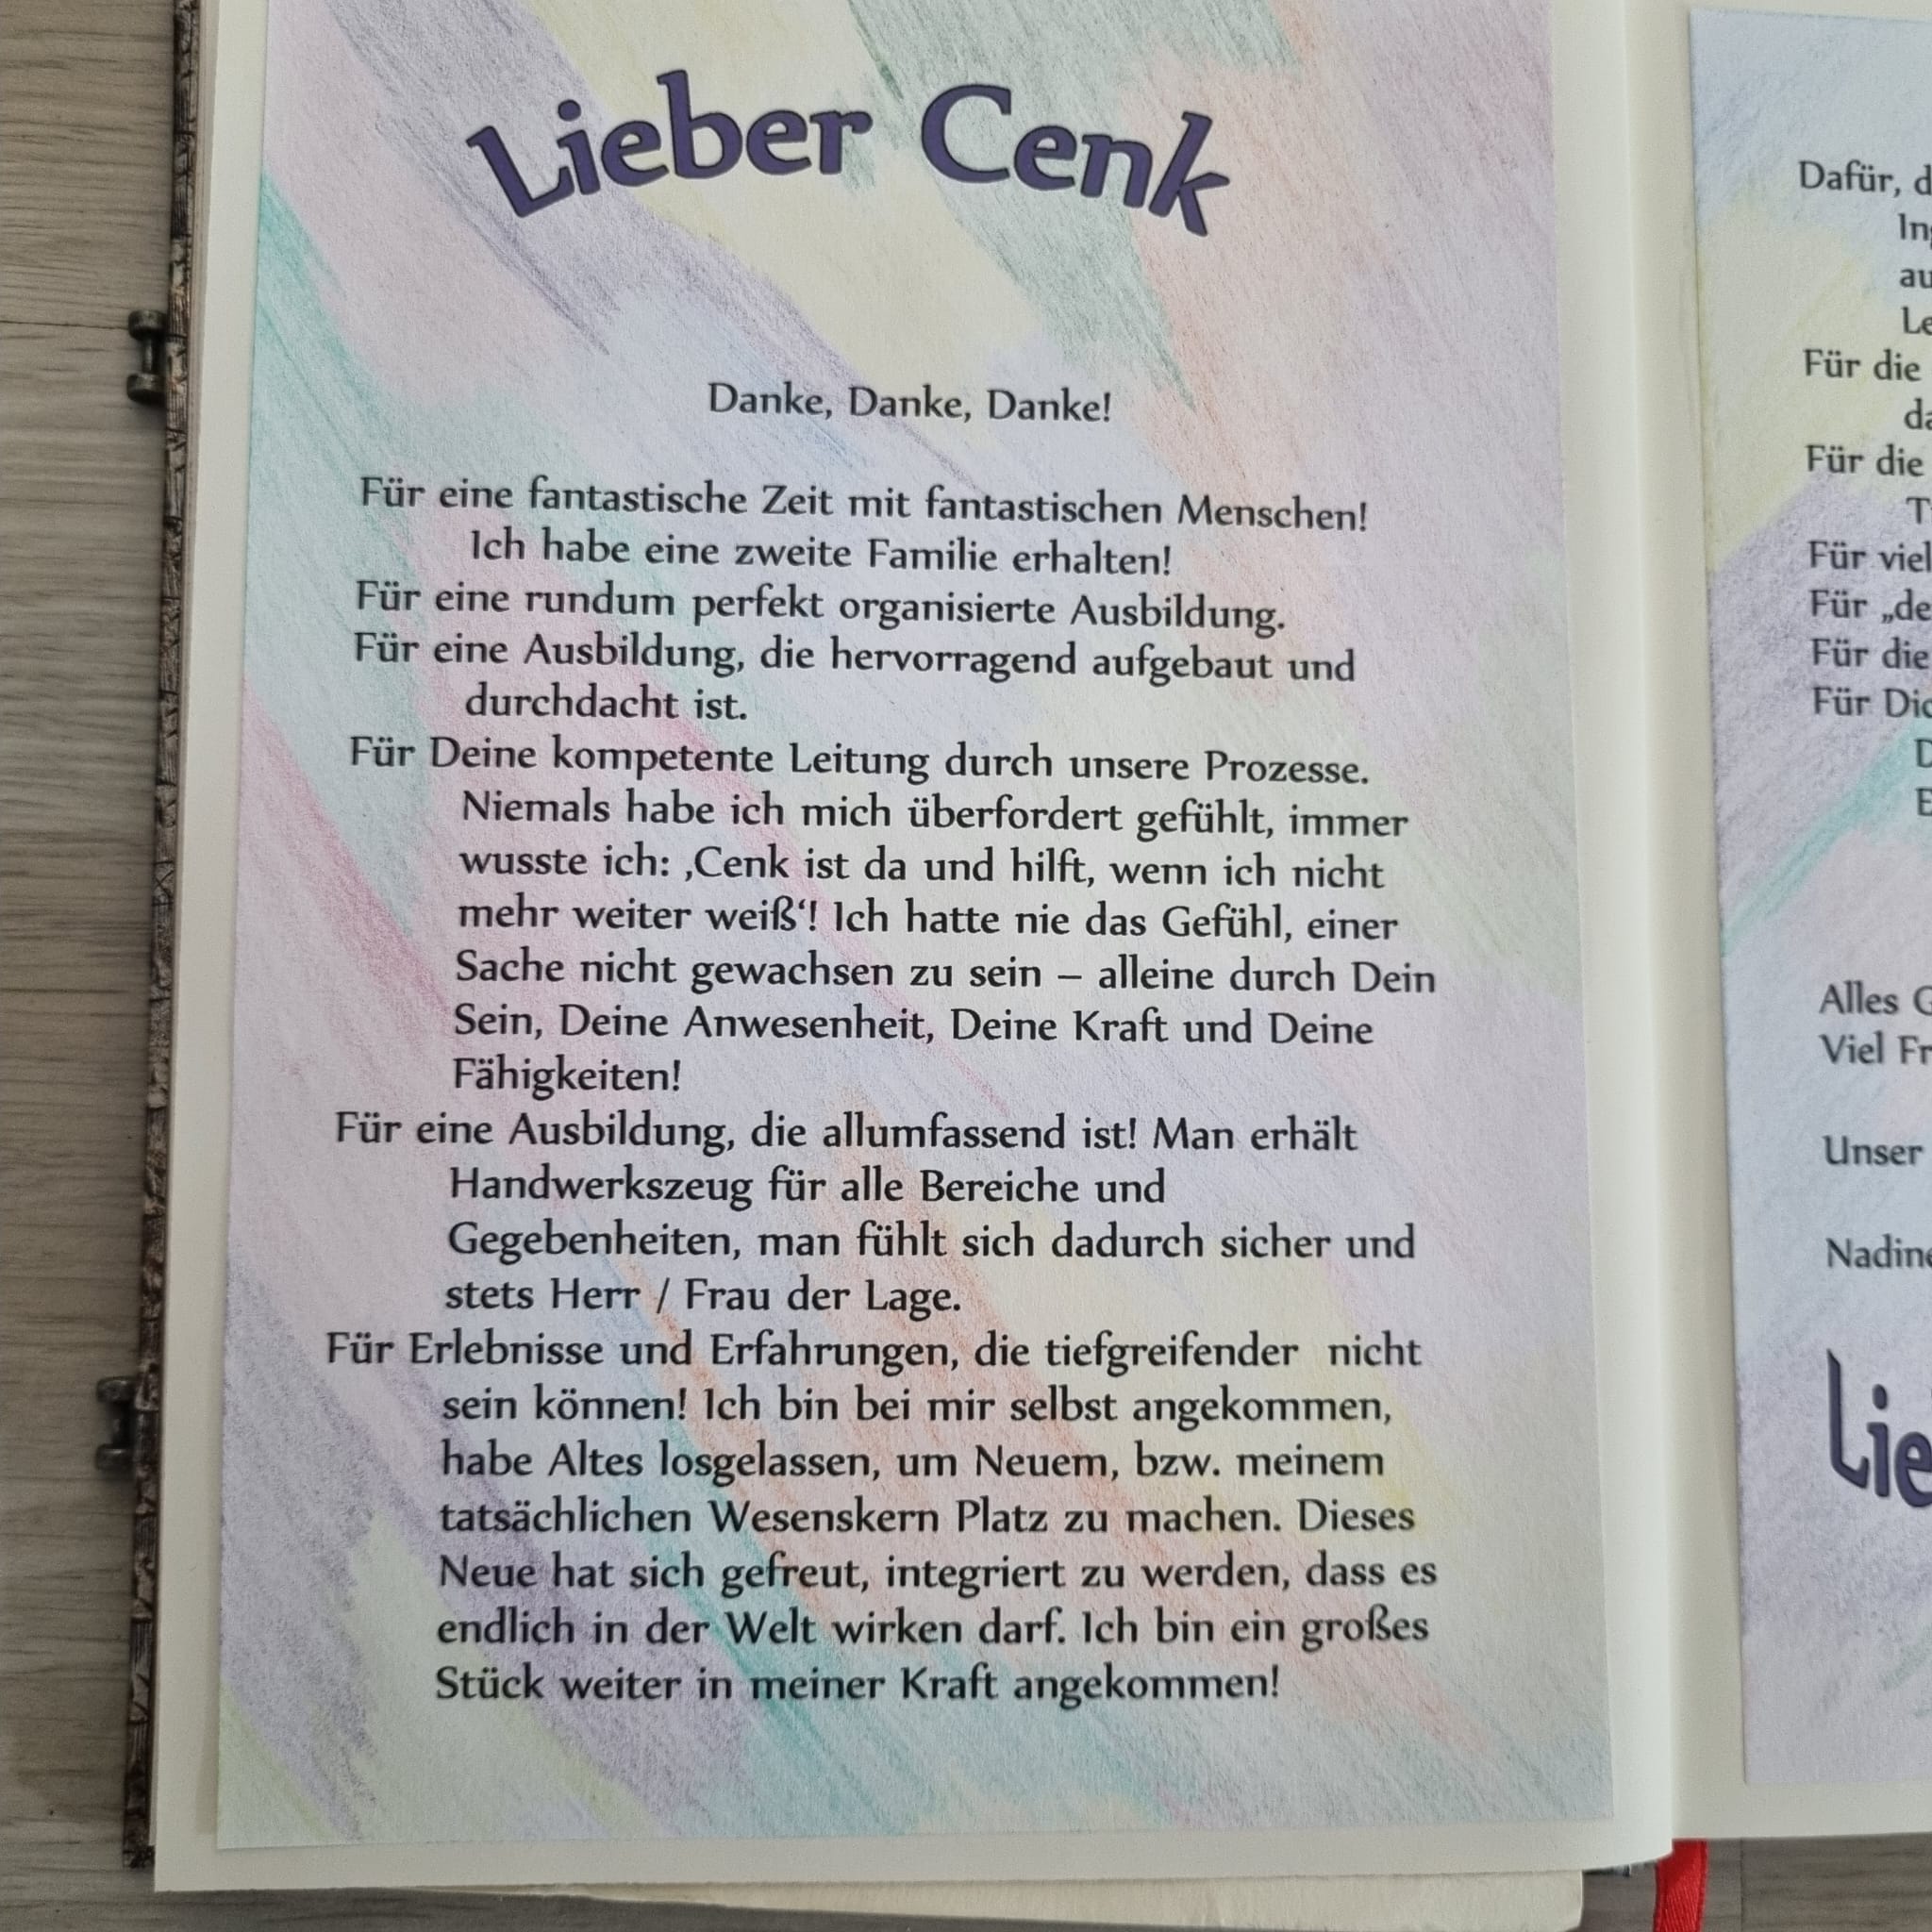 Lieber Cenk
Danke, Danke, Danke!
Für eine fantastische Zeit mit fantastischen Menschen!
Ich habe eine zweite Familie erhalten!
Für eine rundum perfekt organisierte Ausbildung.
Für eine Ausbildung, die hervorragend aufgebaut und
durchdacht ist.
Für Deine kompetente Leitung durch unsere Prozesse.
Niemals habe ich mich überfordert gefühlt, immer
wusste ich: ‚Cenk ist da und hilft, wenn ich nicht
mehr weiter weiß‘! Ich hatte nie das Gefühl, einer
Sache nicht gewachsen zu sein – alleine durch Dein
Sein, Deine Anwesenheit, Deine Kraft und Deine
Fähigkeiten!
Für eine Ausbildung, die allumfassend ist! Man erhält
Handwerkszeug für alle Bereiche und
Gegebenheiten, man fühlt sich dadurch sicher und
stets Herr / Frau der Lage.
Für Erlebnisse und Erfahrungen, die tiefgreifender nicht
sein können! Ich bin bei mir selbst angekommen,
habe Altes losgelassen, um Neuem, bzw. meinem
tatsächlichen Wesenskern Platz zu machen. Dieses
Neue hat sich gefreut, integriert zu werden, dass es
endlich in der Welt wirken darf. Ich bin ein großes
Stück weiter in meiner Kraft angekommen!
Dafür,
Für die
Für die
Für
Für
Für die
Für
Alles
Viel
Unser